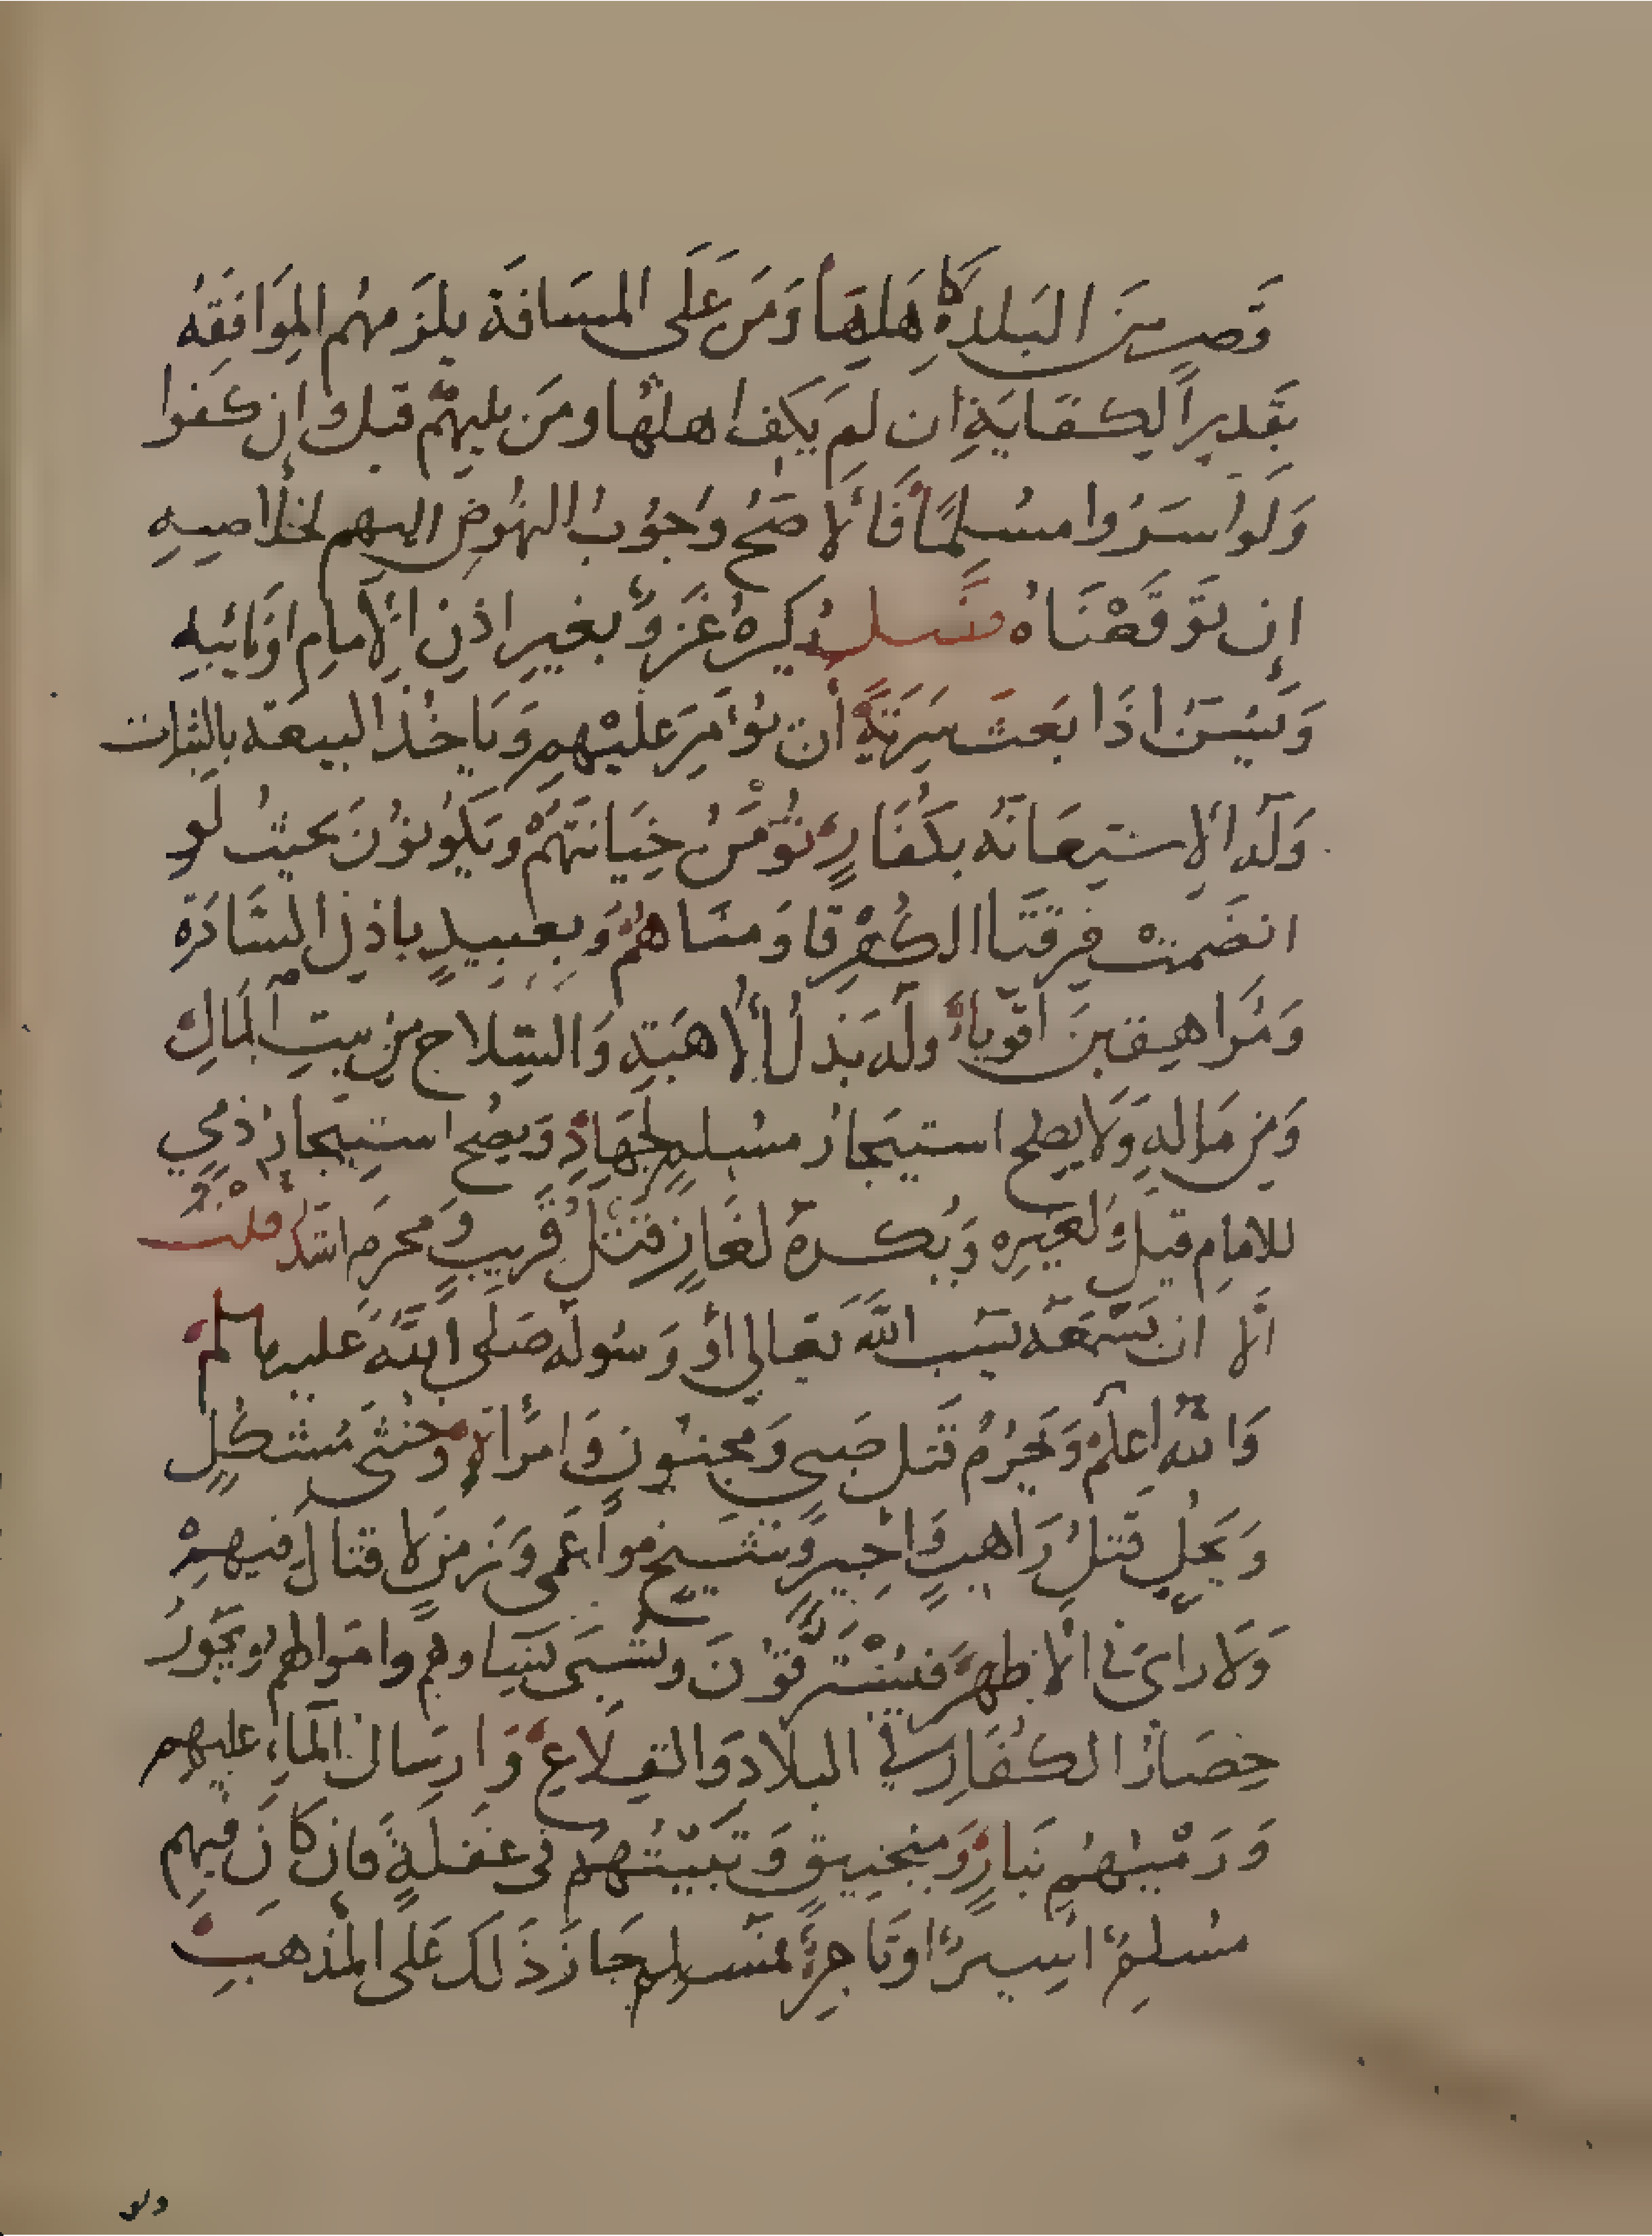 قصر من البلد كاهلها ومن على المسافة يلزمهم الموافقه
بقدر الكفاية ان لم يكف اهلها ومن يليهم قيل وان كفوا
ولو اسروا مسلما فالاصح وجوب النهوض اليهم لخلاصه
ان توقعناه فصل يكره غزو بغير اذن الامام او نائبه
ويسن اذا بعث سرية ان يؤمر عليهم وياخذ البيعة بالثبات
وله الاستعانه بكفار تؤمن خيانتهم ويكونون بحيث لو
انضمت فرقتا الكفر قاومناهم وبعبيد باذن السادة
ومراهقين اقوياء وله بذل الاهبة والسلاح من بيت المال
ومن ماله ولا يصح استيجار مسلم لجهاد ويصح استيجار ذمي
للامام قيل ولغيره ويكره لغاز قتل قريب ومحرم اشد قلت
الا ان يسمعه يسب الله تعالى او رسوله صلى الله عليه وسلم
والله اعلم ويحرم قتل صبي ومجنون وامراة وخنثى مشكل
ويحل قتل راهب واجير وشيخ واعمى وزمن لا قتال فيهم
ولا راي في الاظهر فيسترقون وتسبى نساوهم واموالهم ويجوز
حصار الكفار في البلاد والقلاع وارسال الماء عليهم
ورميهم بنار ومنجنيق وتبييتهم في غفلة فان كان فيهم
مسلم اسير او تاجر مسلم جاز ذلك على المذهب
ولو